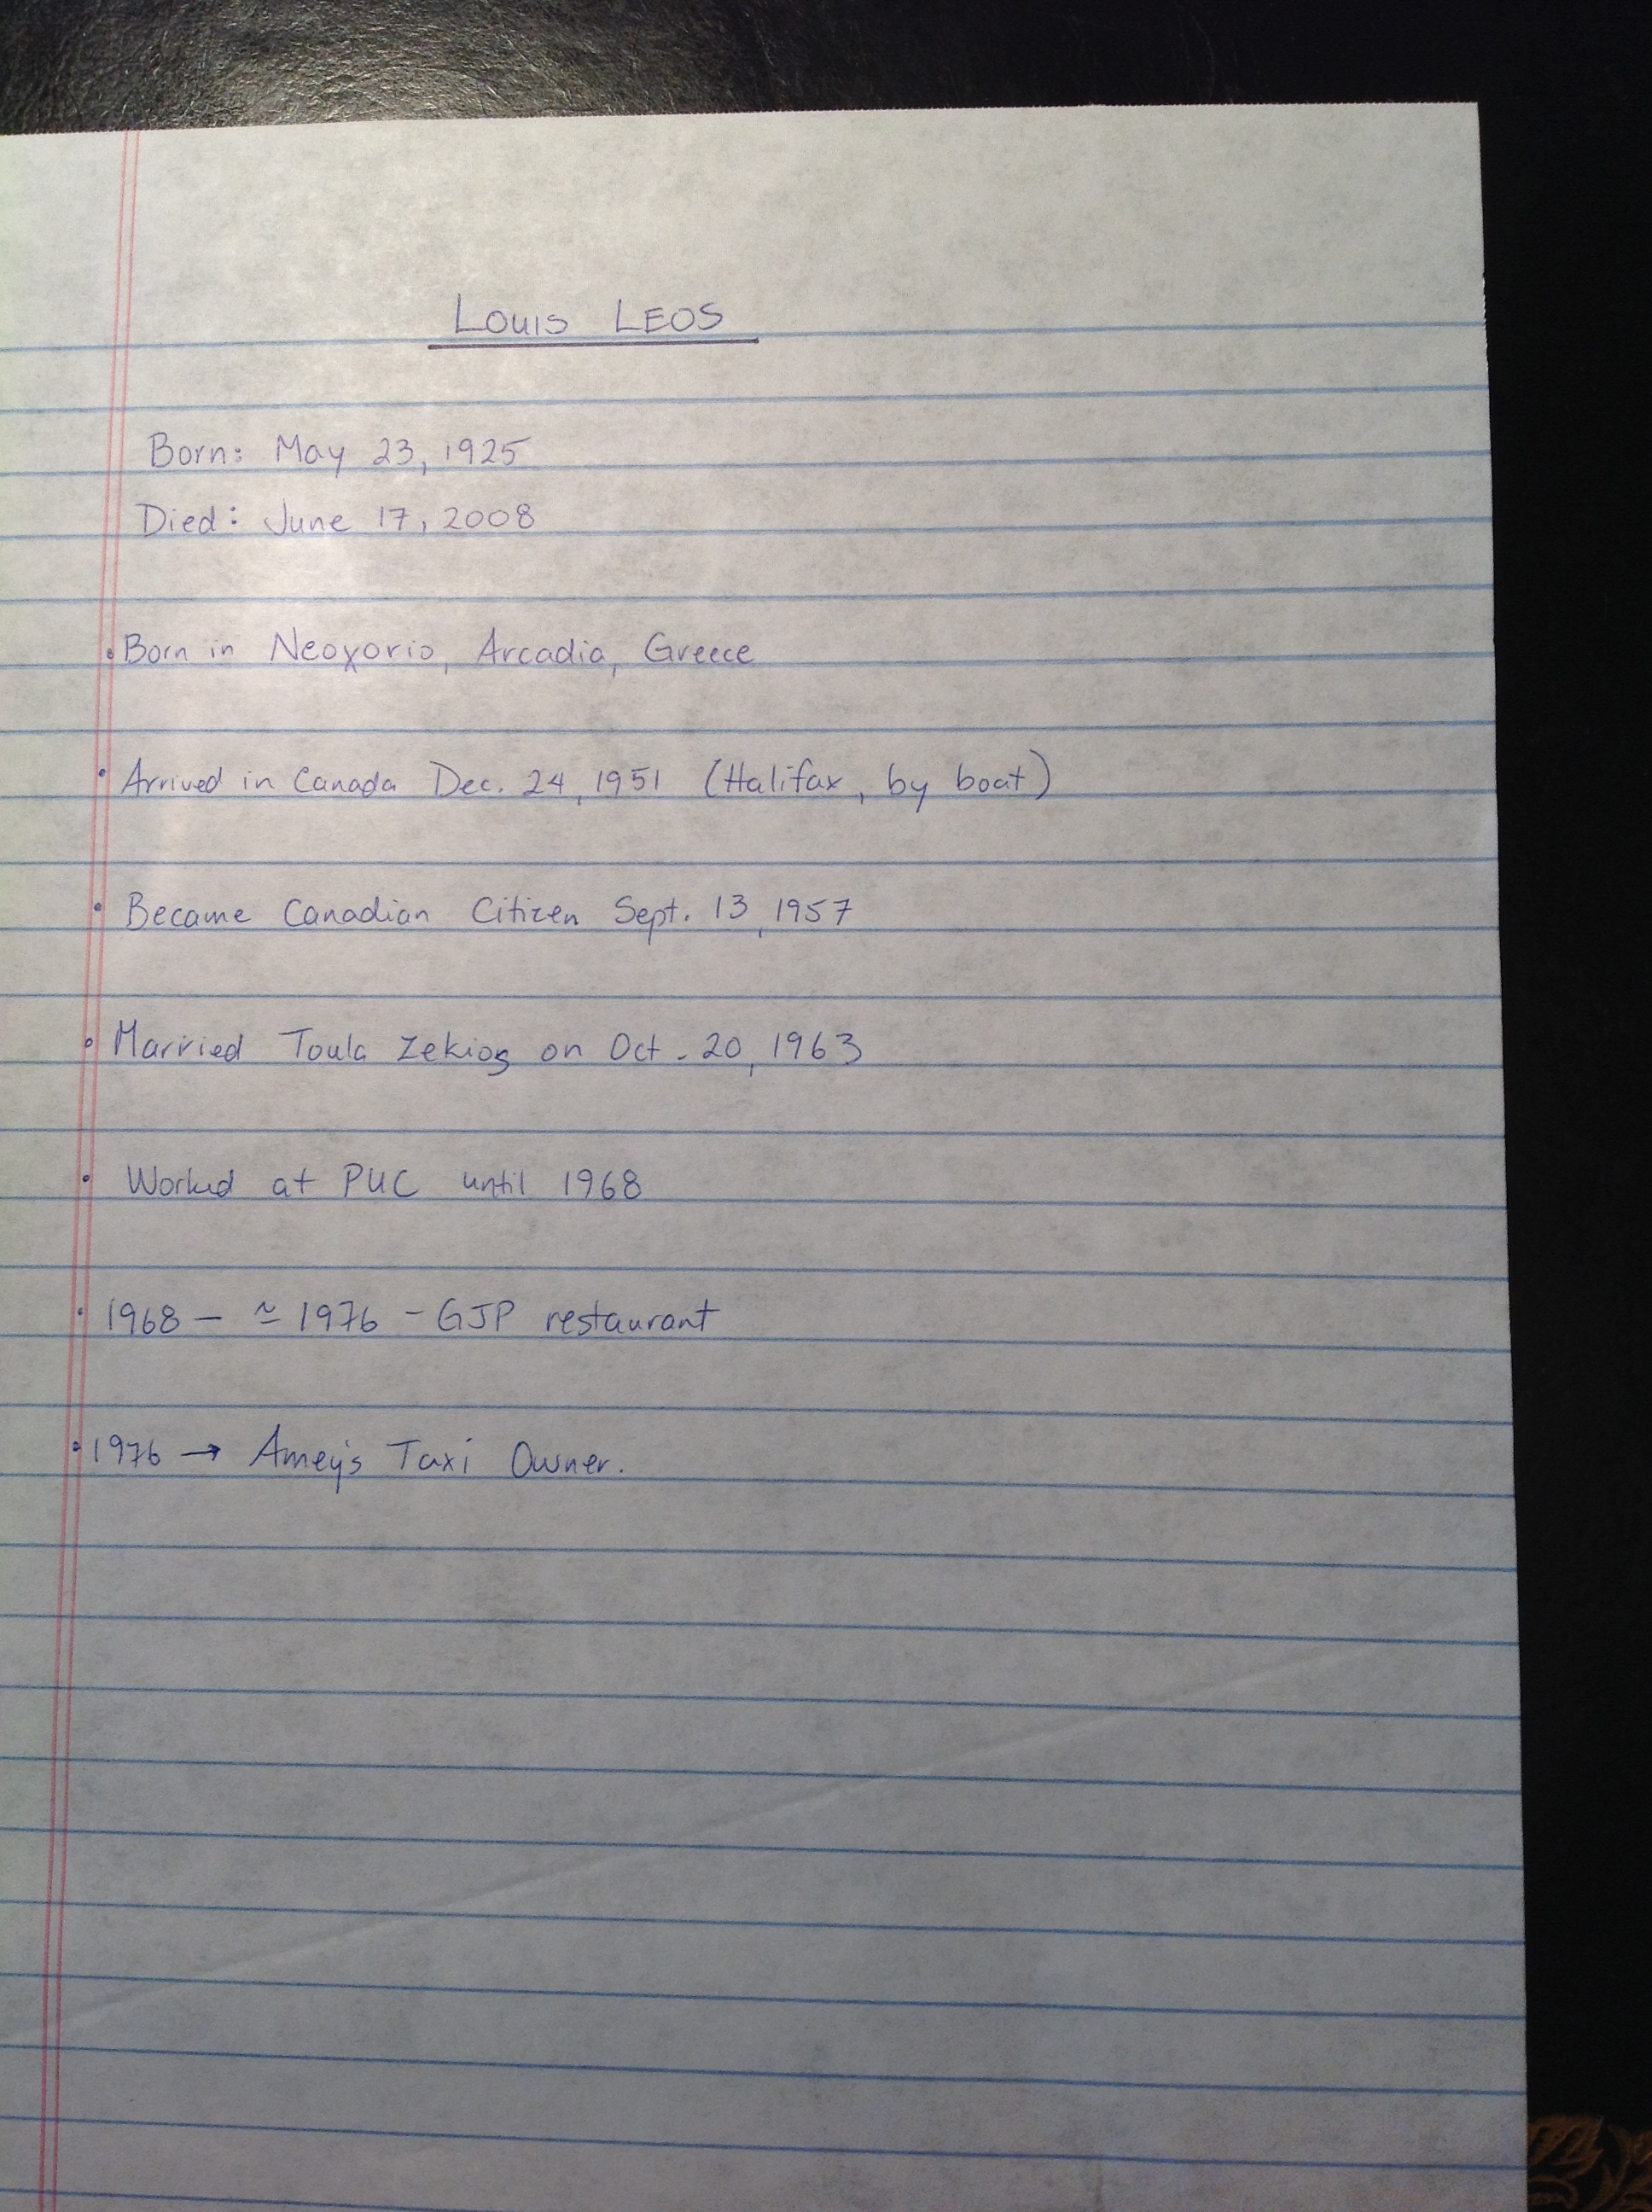 Louis LEOS
Born: May 23, 1925
Died: June 17, 2008
• Born in Neoxorio, Arcadia, Greece
• Arrived in Canada Dec. 24, 1951 (Halifax, by boat)
• Became Canadian Citizen Sept. 13, 1957
• Married Toula Zekios on Oct. 20, 1963
• Worked at PUC until 1968
• 1968 – ≃ 1976 – GJP restaurant
• 1976 → Amey's Taxi Owner.